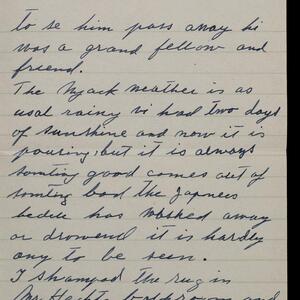 to se him pass away he
was a grand fellow and
friend.
The Nyack weather is as
usal rainy vi had two days
of sunshine and now it is
pouring, but it is always
somting good comes out of
somting bad the Japness
bedele has washed away
or drowend it is hardly
any to be seen.
I shampod the rug in
Mr Hechts bathroom and